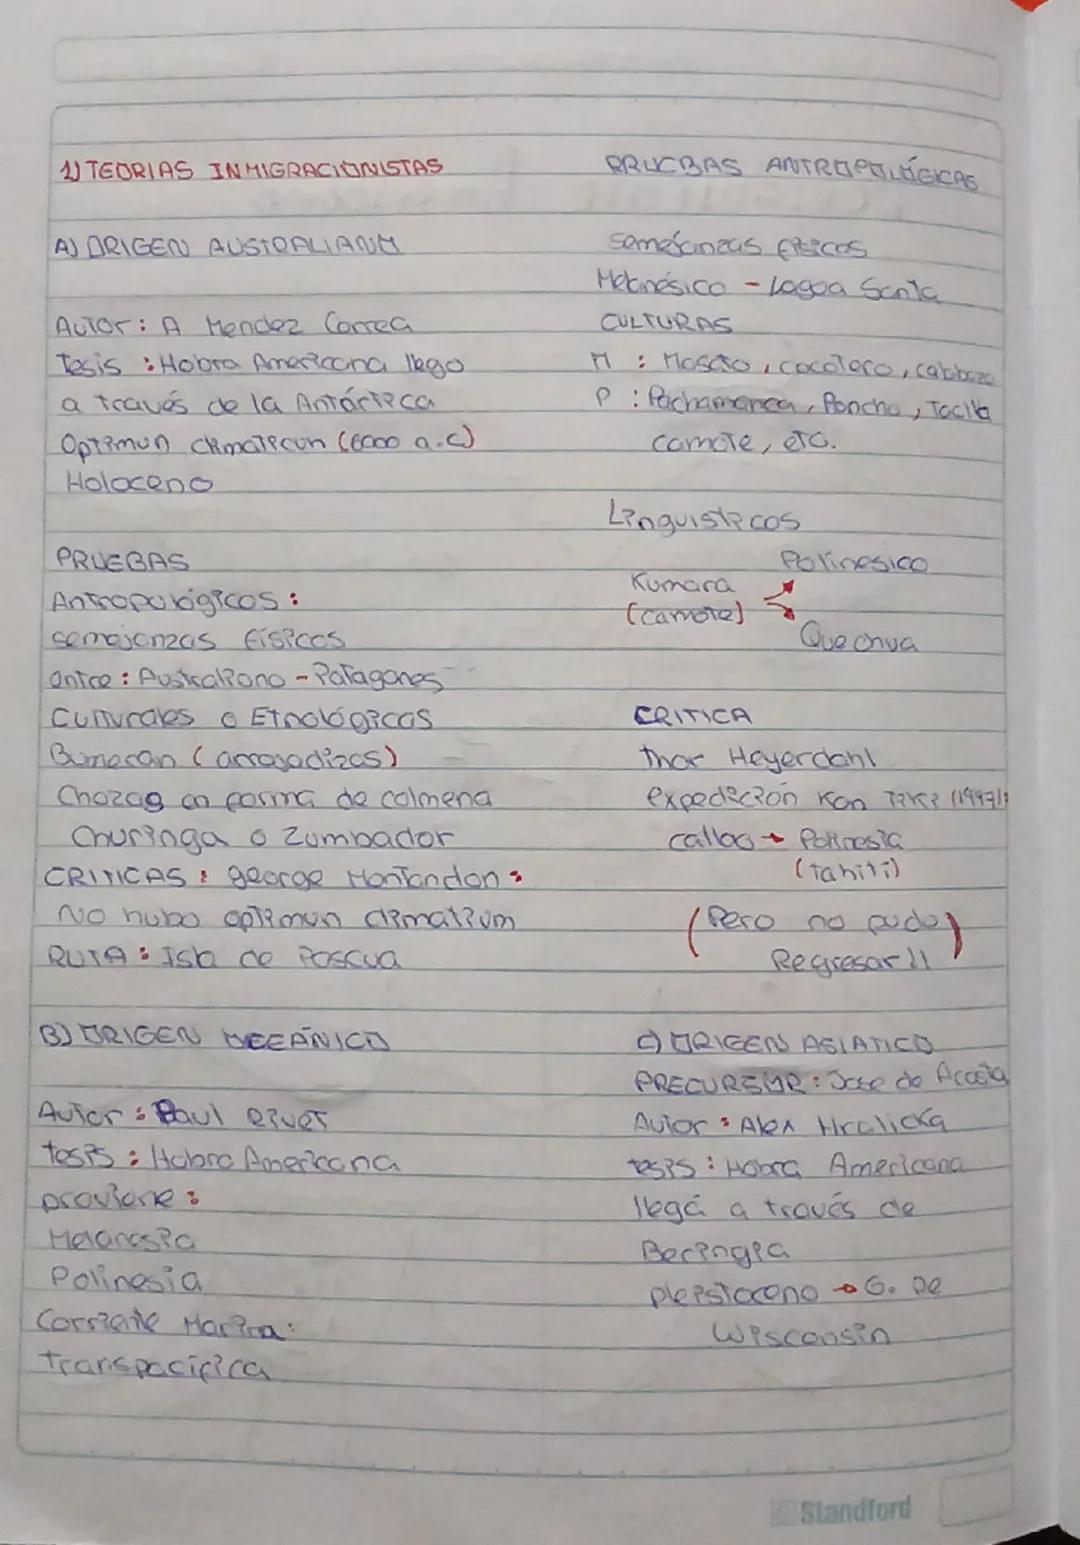 1) TEORIAS INMIGRACIONISTAS
A) ORIGEN AUSTRALIANO
Autor: A Mendez Correa
Tesis: Hobra Americana llego
a través de la Antártica
Optimun climaticun (6000 a.c)
Holoceno
PRUEBAS
Antropológicos:
semejanzas físicas
entre: Australiano - Patagones
Culturales o Etnológicas
Bumeran (arrojadizos)
Chozas en forma de colmena
Churinga o Zumbador
CRITICAS: george Montandon:
No hubo optimun climatium
RUTA: Isla de Pascua
B) ORIGEN OCEÁNICO
Autor: Paul Rivet
tesis: Hobro Americana
proviene:
Melanesia
Polinesia
Corriente Marina:
transpacifica
PRUEBAS ANTROPOLÓGICAS
semejanzas físicas
Melanésico - Lagoa Santa
CULTURAS
M:
P: Pachamanca, Poncho, Taclla
camote, etc.
Linguisticos
Polinesico
Kumara
(camote)
Quechua
CRITICA
Thor Heyerdahl
expedición Kon Tiki
callao → Polinesia
(tahiti)
(Pero no pudo
Regresar!!)
C) ORIGEN ASIATICO
PRECURSOR: Jose de Acosta
Autor: Alex Hralicka
tesis: Hobra Americana
llegá a través de
Beringia
pleistoceno → G. De
Wisconsin
Standford